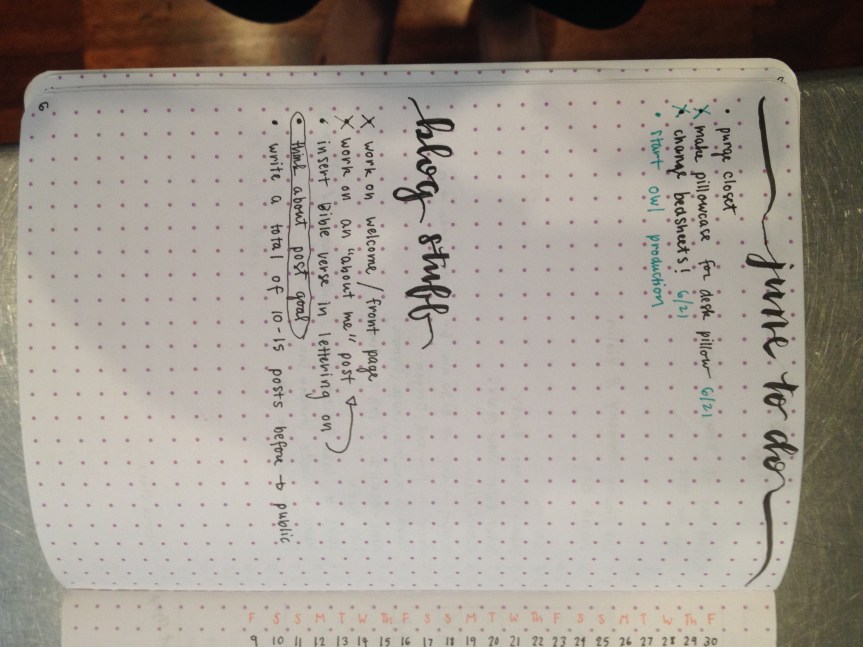 june to do
• purge closet
X make pillowcase for desk pillow 6/21
X change bedsheets! 6/21
• start owl production
blog stuff
X work on welcome / front page
X work on an "about me" post
• insert Bible verse in lettering on
• think about post goal
• write a total of 10-15 posts before → public
6
F S S M T W Th F S S M T W Th F S S M T W Th F
9 10 11 12 13 14 15 16 17 18 19 20 21 22 23 24 25 26 27 28 29 30